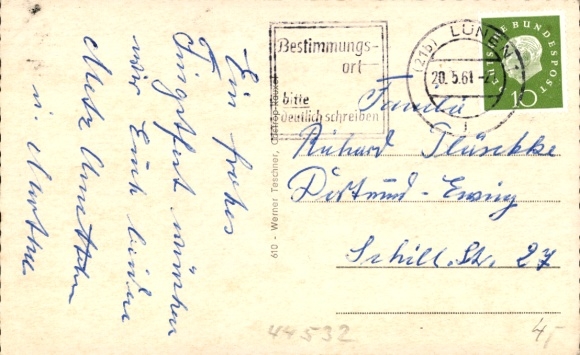 Ein frohes
wünschen
wir Euch
u.
Bestimmungs-
ort
bitte
deutlich schreiben
(21b) LÜNEN
20.5.61
1
DEUTSCHE BUNDESPOST
10
Familie
Richard
Dortmund - Eving
Schill. Str. 27
610 - Werner Teschner, Castrop-Rauxel
44532
4,-